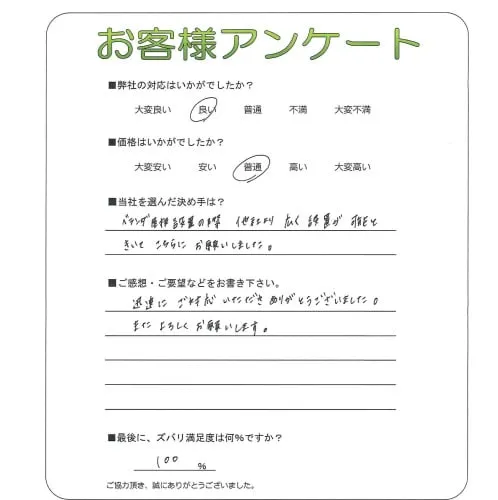 お客様アンケート
■弊社の対応はいかがでしたか？
大変良い 良い 普通 不満 大変不満
■価格はいかがでしたか？
大変安い 安い 普通 高い 大変高い
■当社を選んだ決め手は？
ベランダ屋根設置の際 他社より広く設置が可能と
きいて こちらにお願いしました。
■ご感想・ご要望などをお書き下さい。
迅速にご対応いただきありがとうございました。
またよろしくお願いします。
■最後に、ズバリ満足度は何%ですか？
100 %
ご協力頂き、誠にありがとうございました。